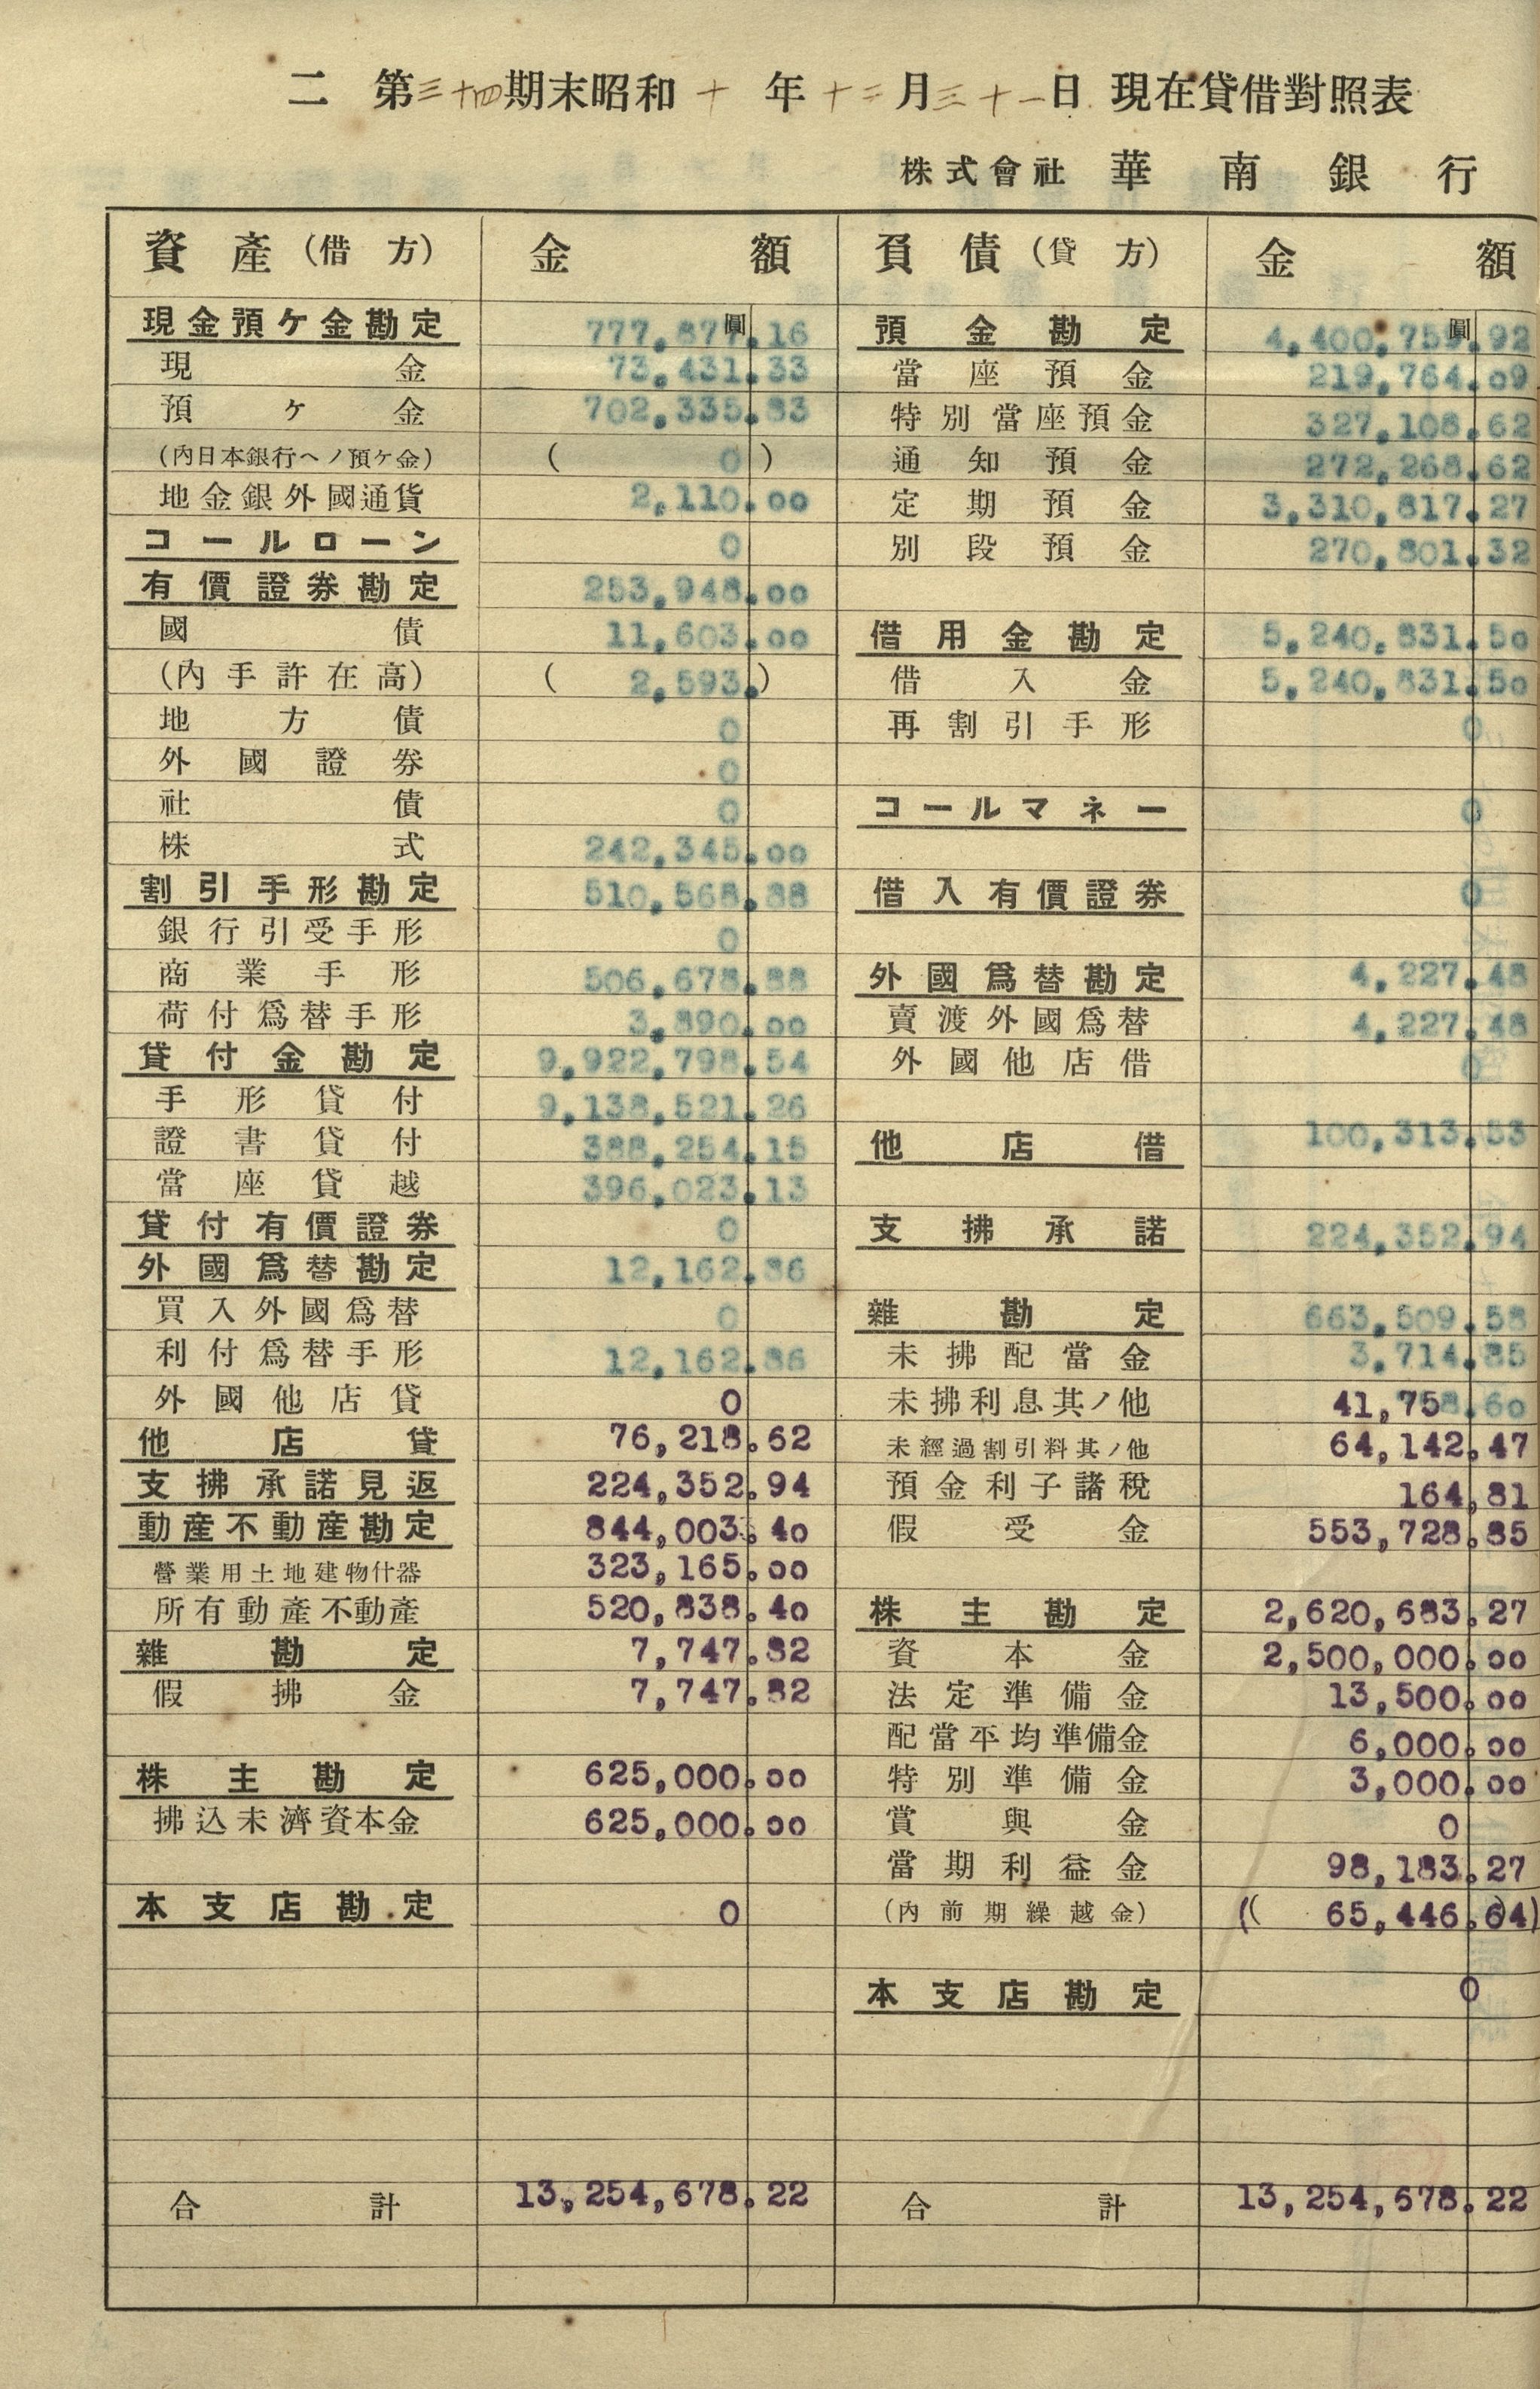 二 第三十四期末昭和十年十二月三十一日現在貸借對照表
株式會社 華南銀行
資產(借方) 金額
現金預ケ金勘定 777,877圓.16
現金 73,431.33
預ケ金 702,335.83
(內日本銀行ヘノ預ケ金) (0)
地金銀外國通貨 2,110.00
コールローン 0
有價證券勘定 253,948.00
國債 11,603.00
(內手許在高) (2,593.)
地方債 0
外國證券 0
社債 0
株式 242,345.00
割引手形勘定 510,568.88
銀行引受手形 0
商業手形 506,678.88
荷付爲替手形 3,890.00
貸付金勘定 9,922,798.54
手形貸付 9,138,521.26
證書貸付 388,254.15
當座貸越 396,023.13
貸付有價證券 0
外國爲替勘定 12,162.86
買入外國爲替 0
利付爲替手形 12,162.86
外國他店貸 0
他店貸 76,218.62
支拂承諾見返 224,352.94
動產不動產勘定 844,003.40
營業用土地建物什器 323,165.00
所有動產不動產 520,838.40
雜勘定 7,747.82
假拂金 7,747.82
株主勘定 625,000.00
拂込未濟資本金 625,000.00
本支店勘定 0
合計 13,254,678.22
負債(貸方) 金額
預金勘定 4,400,759圓.92
當座預金 219,764.09
特別當座預金 327,108.62
通知預金 272,268.62
定期預金 3,310,817.27
別段預金 270,801.32
借用金勘定 5,240,831.50
借入金 5,240,831.50
再割引手形 0
コールマネー 0
借入有價證券 0
外國爲替勘定 4,227.48
賣渡外國爲替 4,227.48
外國他店借 0
他店借 100,313.53
支拂承諾 224,352.94
雜勘定 663,509.58
未拂配當金 3,714.85
未拂利息其ノ他 41,758.60
未經過割引料其ノ他 64,142.47
預金利子諸稅 164,81
假受金 553,728.85
株主勘定 2,620,683.27
資本金 2,500,000.00
法定準備金 13,500.00
配當平均準備金 6,000.00
特別準備金 3,000.00
賞與金 0
當期利益金 98,183.27
(內前期繰越金) ((65,446.64)
本支店勘定 0
合計 13,254,678.22